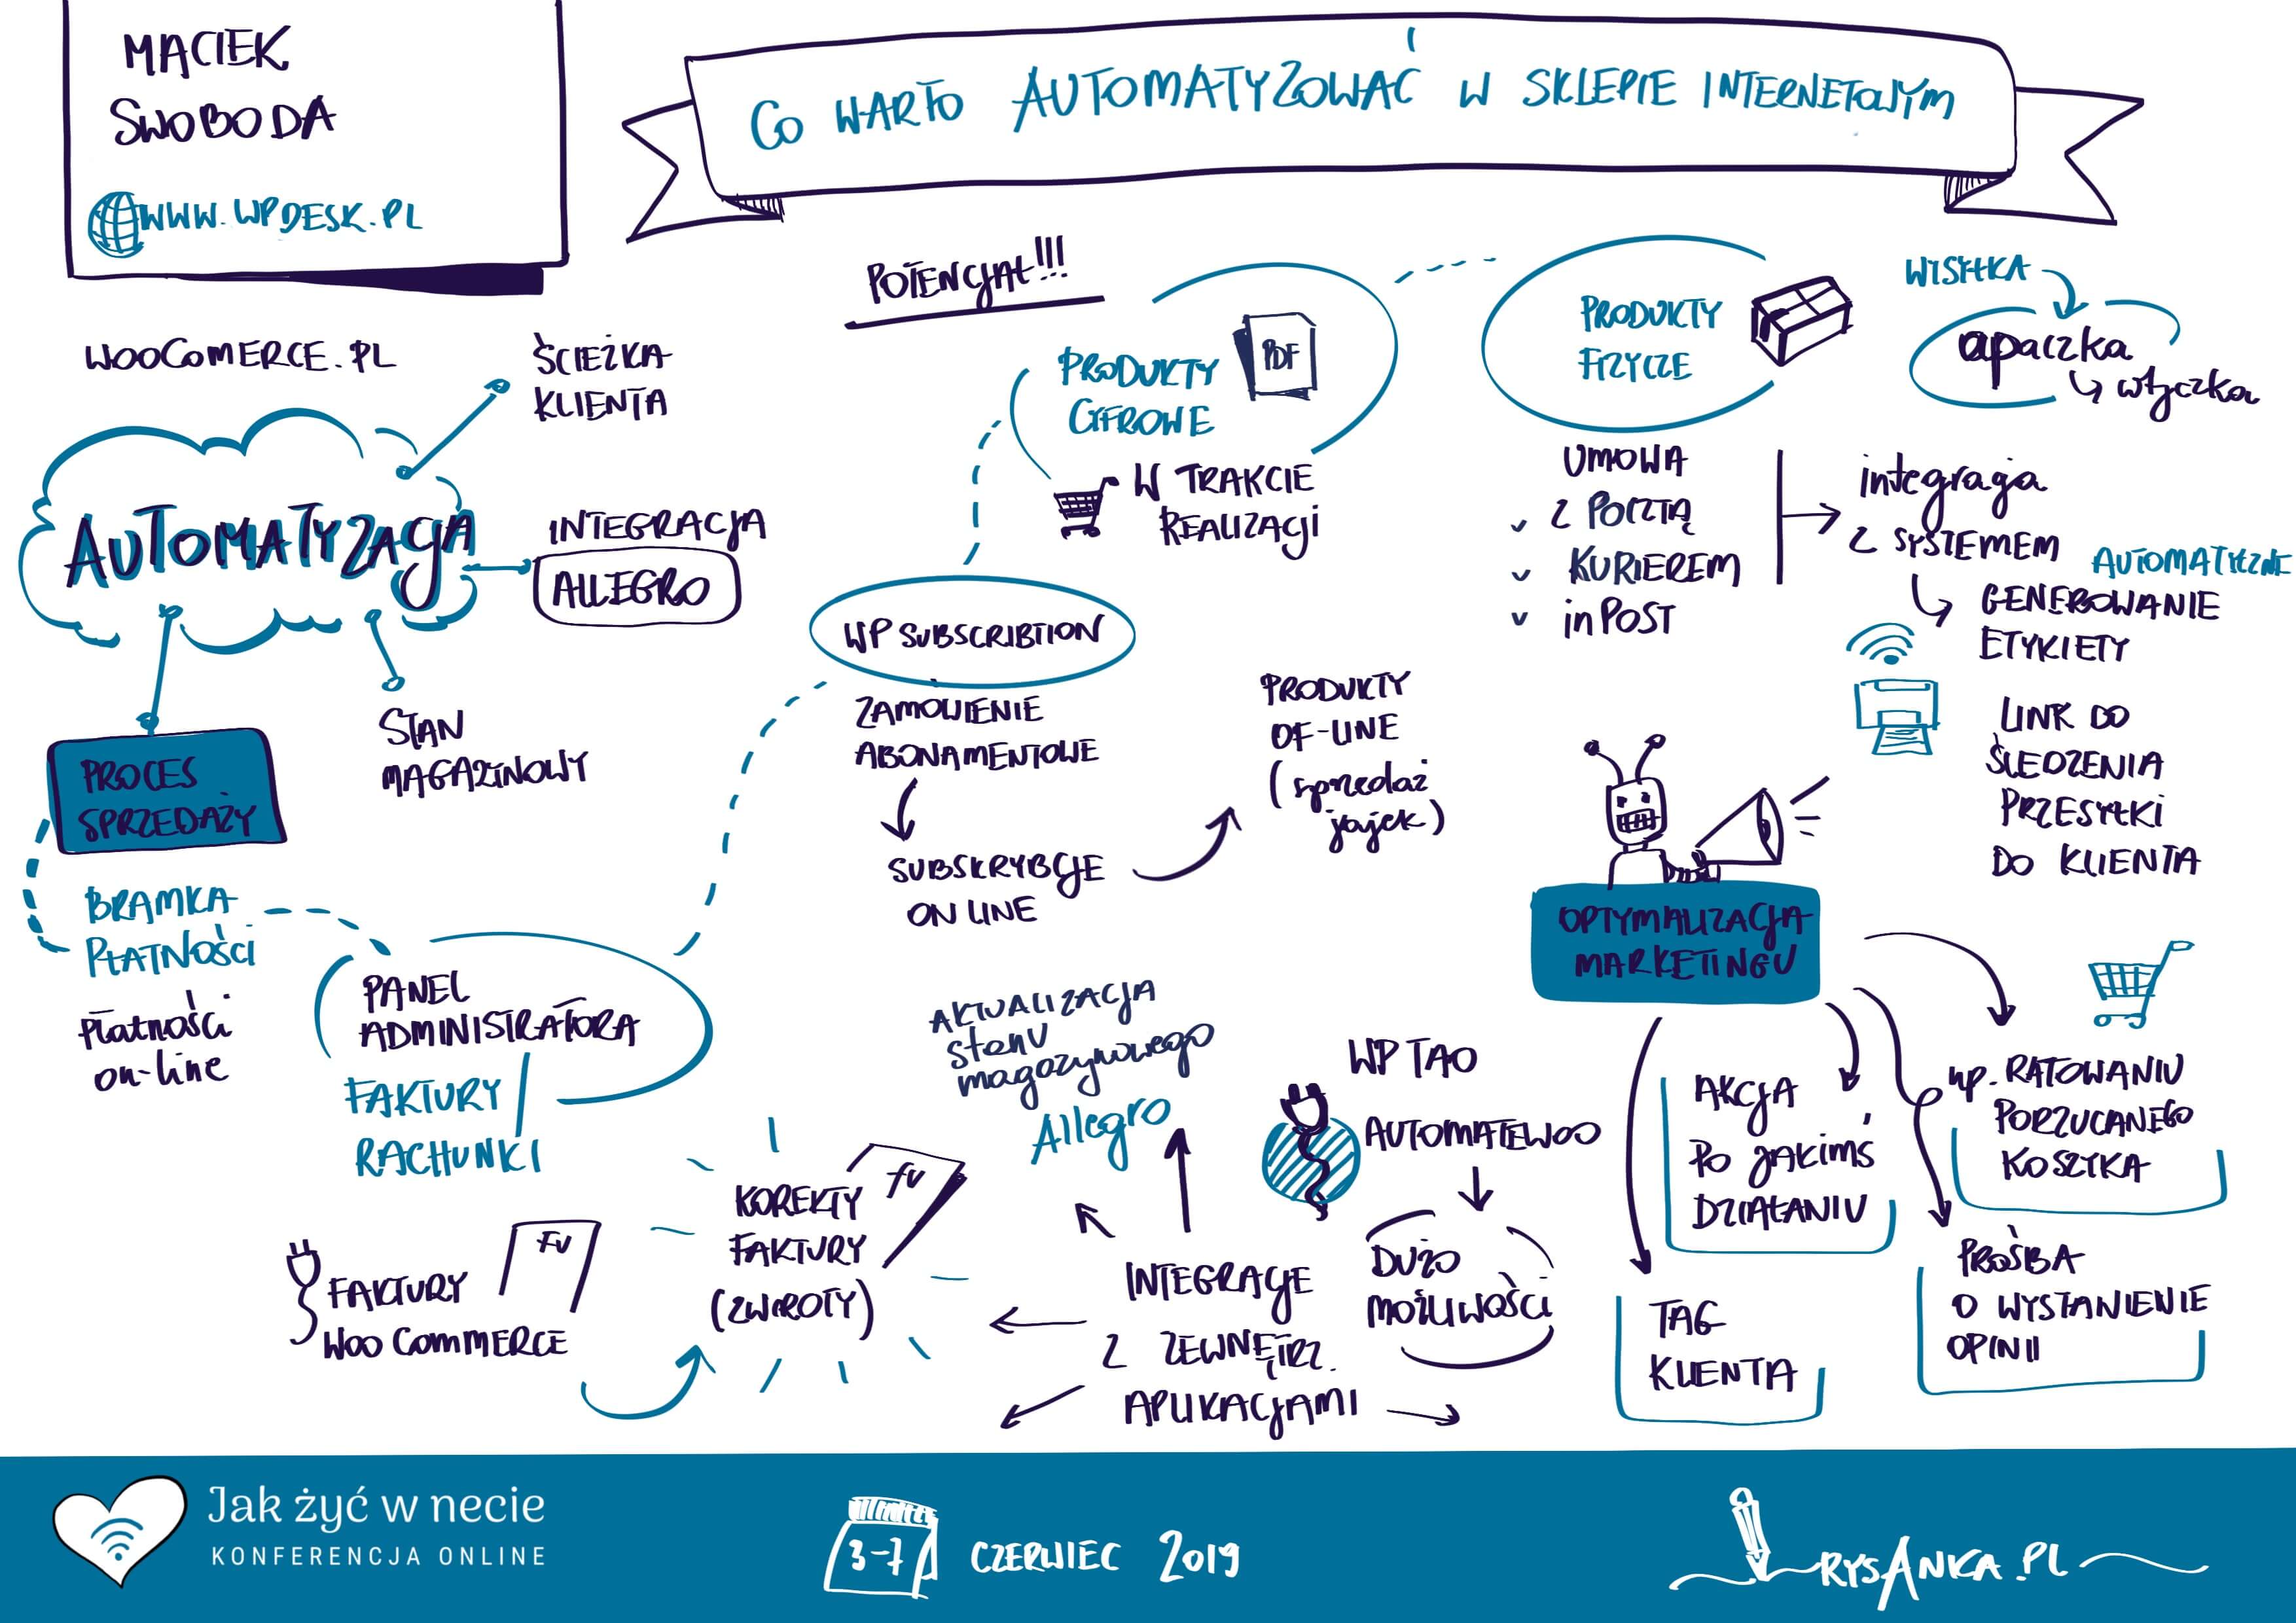 MACIEK
SWOBODA
WWW.WPDESK.PL
CO WARTO AUTOMATYZOWAĆ W SKLEPIE INTERNETOWYM
WOOCOMERCE.PL
ŚCIEŻKA
KLIENTA
AUTOMATYZACJA
INTEGRACJA
ALLEGRO
STAN
MAGAZYNOWY
PROCES
SPRZEDAŻY
BRAMKA
PŁATNOŚCI
Płatności
on-line
PANEL
ADMINISTRATORA
FAKTURY
RACHUNKI
FV
FAKTURY
WOO COMMERCE
fv
KOREKTY
FAKTURY
(ZWROTY)
POTENCJAŁ!!!
PRODUKTY
CYFROWE
PDF
W TRAKCIE
REALIZACJI
WP SUBSCRIBTION
ZAMOWIENIE
ABONAMENTOWE
SUBSKRYBCJE
ON LINE
PRODUKTY
OF-LINE
(sprzedaż
jajek)
AKTUALIZACJA
stanu
magazynowego
Allegro
INTEGRACJE
Z ZEWNĘTRZ.
APLIKACJAMI
WP TAO
AUTOMATEWOO
DUŻO
MOŻLIWOŚCI
PRODUKTY
FIZYCZE
WYSYŁKA
apaczka
wtyczka
UMOWA
Z POCZTĄ
KURIEREM
inPOST
integracja
Z SYSTEMEM
AUTOMATYCZNE
GENEROWANIE
ETYKIETY
LINK DO
ŚLEDZENIA
PRZESYŁKI
DO KLIENTA
OPTYMALIZACJA
MARKETINGU
TAG
KLIENTA
AKCJA
PO JAKIMŚ
DZIAŁANIU
np. RATOWANIU
PORZUCANEGO
KOSZYKA
PROŚBA
O WYSTANIENIE
OPINII
Jak żyć w necie
KONFERENCJA ONLINE
3-7 CZERWIEC 2019
RYSANKA.PL